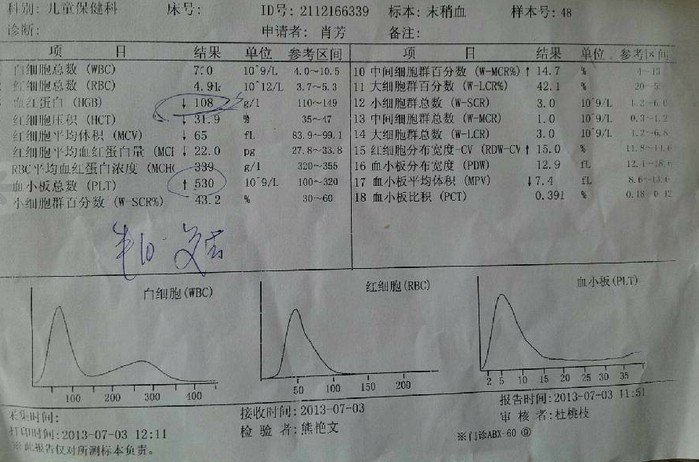 科别: 儿童保健科 床号: ID号: 2112166339 标本: 末稍血 样本号: 48
诊断: 申请者: 肖芳 备注:
项 目 结果 单位 参考区间 项 目 结果 单位 参考区间
白细胞总数 (WBC) 7.0 10^9/L 4.0~10.5 10 中间细胞群百分数 (W-MCR%) ↑ 14.7 % 4~13
红细胞总数 (RBC) 4.91 10^12/L 3.7~5.3 11 大细胞群百分数 (W-LCR%) 42.1 %
血红蛋白 (HGB) ↓ 108 g/l 110~149 12 小细胞群总数 (W-SCR) 3.0 10^9/L 1.2~6.0
红细胞压积 (HCT) ↓ 31.9 % 35~47 13 中间细胞群总数 (W-MCR) 1.0 10^9/L 0.3~1.2
红细胞平均体积 (MCV) ↓ 65 fL 83.9~99.1 14 大细胞群总数 (W-LCR) 3.0 10^9/L 1.2~6.8
红细胞平均血红蛋白量 (MCH ↓ 22.0 pg 27.8~33.8 15 红细胞分布宽度-CV (RDW-CV ↑ 15.0 %
RBC平均血红蛋白浓度 (MCHC 339 g/l 320~355 16 血小板分布宽度 (PDW) 12.9 fL
血小板总数 (PLT) ↑ 530 10^9/L 100~320 17 血小板平均体积 (MPV) ↓ 7.4 fL
小细胞群百分数 (W-SCR%) 43.2 % 30~60 18 血小板比积 (PCT) 0.391 % 0.18~0.42
白细胞 (WBC) 红细胞 (RBC) 血小板 (PLT)
100 200 300 400 50 100 150 200 2 5 10 15 20 25 30 35
采集时间: 接收时间: 2013-07-03 报告时间: 2013-07-03 11:51
打印时间: 2013-07-03 12:11 检 验 者: 熊艳文 审 核 者: 杜桃枝
※此报告仅对所测标本负责。 ※门诊ABX-60 ⑨